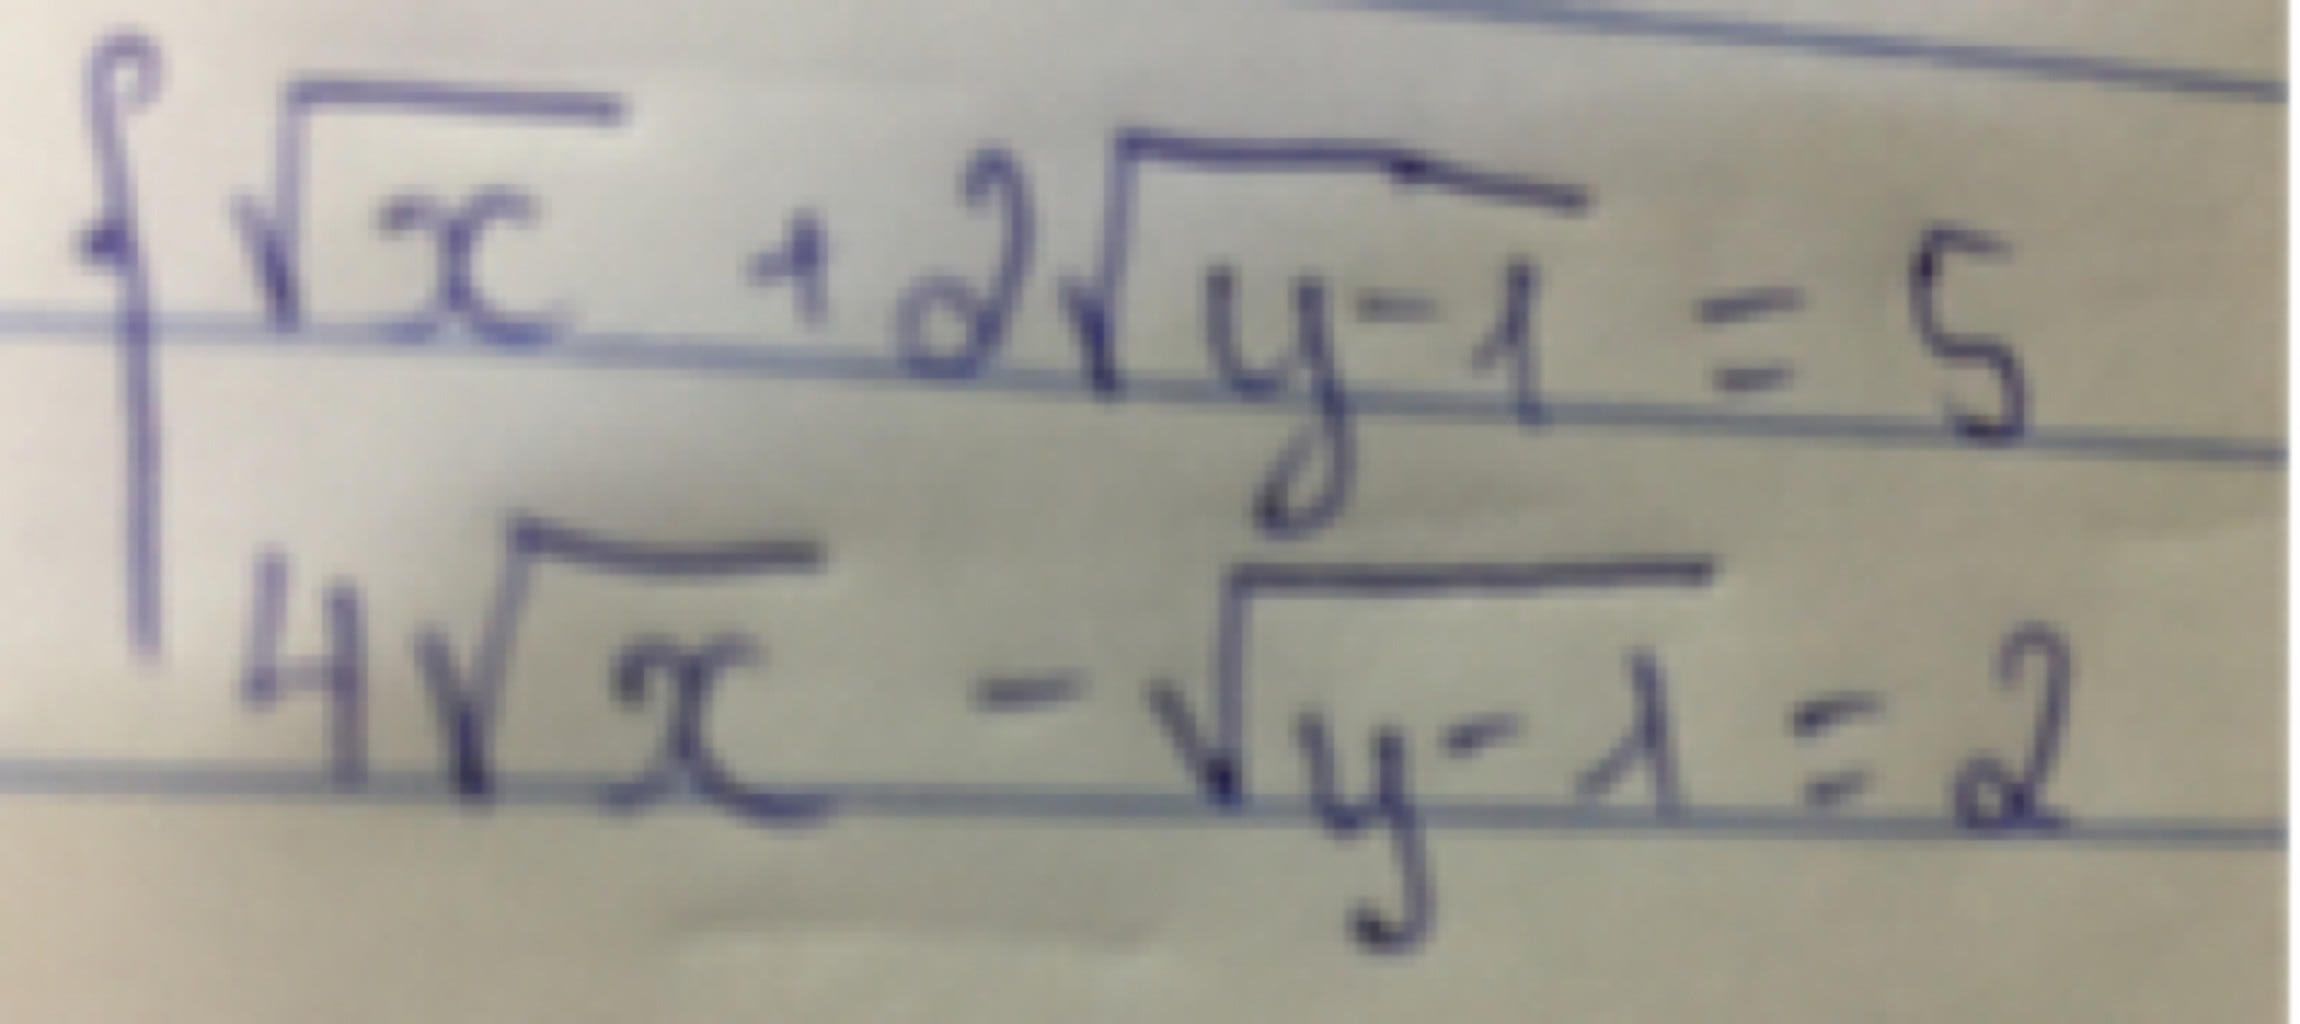 { √x + 2√y-1 = 5
4√x - √y-1 = 2